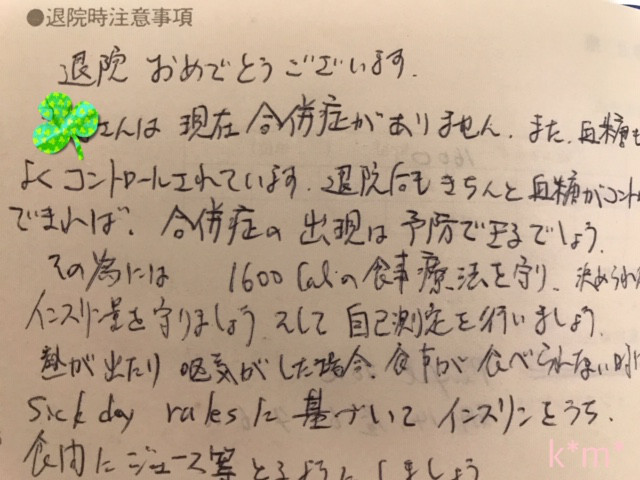 ●退院時注意事項
退院 おめでとうございます.
さんは 現在 合併症がありません. また, 血糖も
よくコントロールされています. 退院后も きちんと 血糖がコント
できれば, 合併症の 出現は 予防できるでしょう.
その為には 1600 Calの食事療法を守り, 決められた
インスリン量を守りましょう そして 自己測定を行いましょう.
熱が出たり 嘔気がした場合, 食事が 食べられない時に
Sick day rulesに 基づいて インスリンをうち.
食間に ジュース等 とるようにしましょう
k*m*